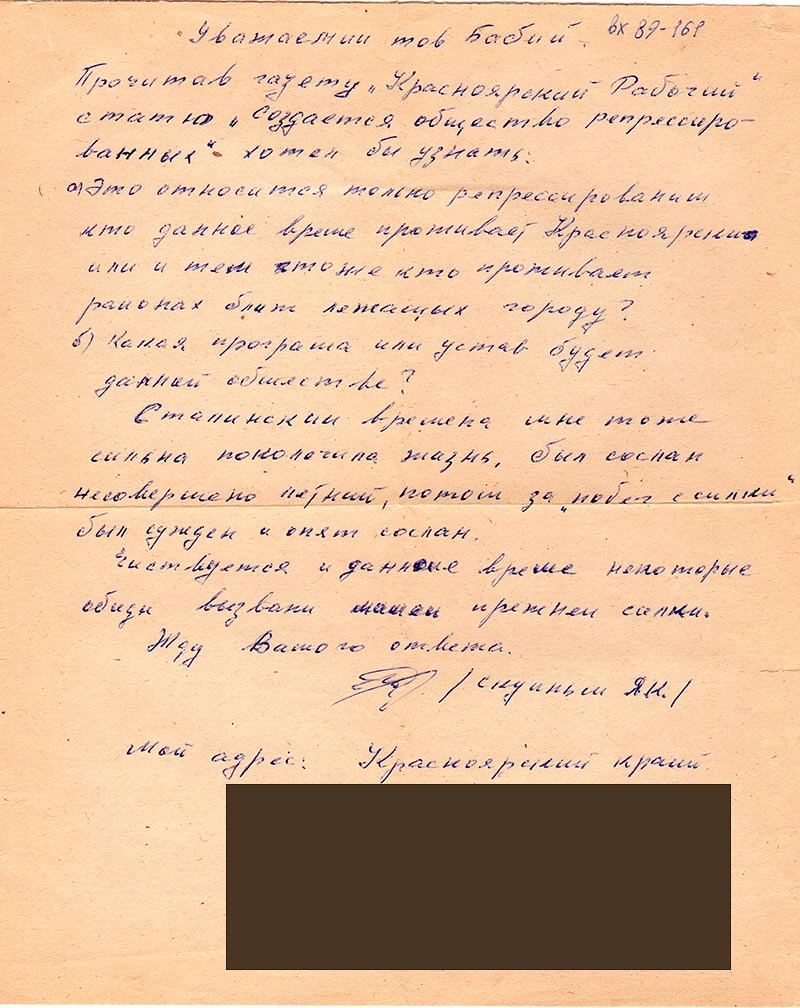 Уважаемии тов Бабий. вх 89-161
Прочитав газету „Красноярский Рабочий"
статю „Создается общество репрессиро-
ванных". хотел бы узнать:
а) Это относится только репрессированим
кто данное време проживает Красноярски
или и тем тоже кто проживает
районах близ лежащых городу?
б) Какая програма или устав будет
данной обшестве?
Сталинскии времена мне тоже
сильна поколочила жизнь, был сослан
несовершено летний, потом за „побег с силки"
был сужден и опят сослан.
Чиствуется и данное време некоторые
обиды вызвани прежнеи силки.
Жду Вашого ответа.
/ Скуиньш Я.К. /
Мой адрес: Красноярский краий